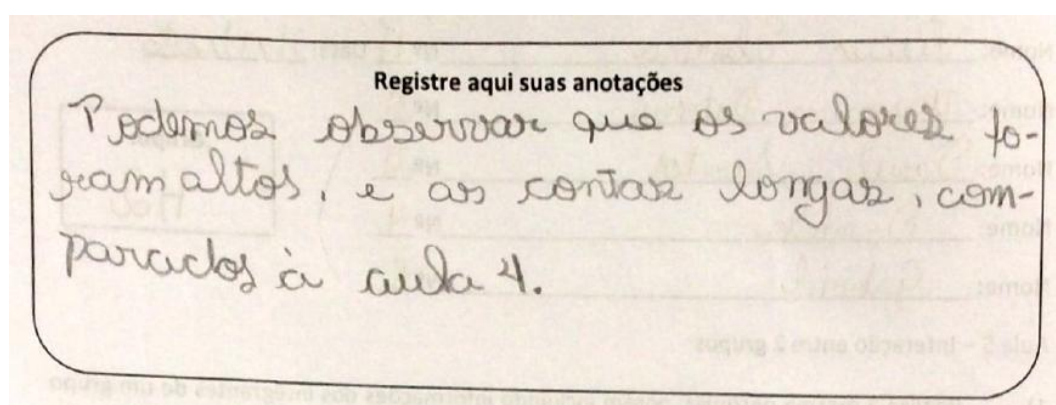 Registre aqui suas anotações
Podemos observar que os valores fo-
ram altos, e as contas longas, com-
parados à aula 4.